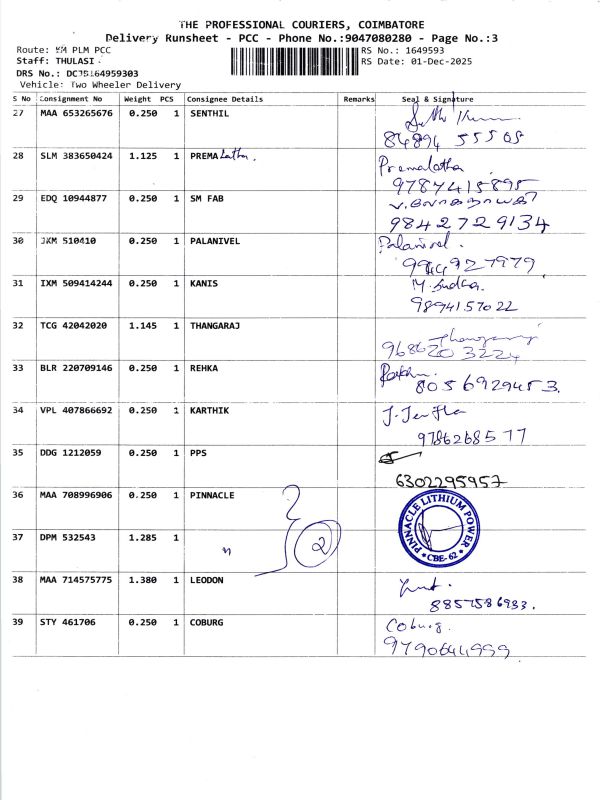 THE PROFESSIONAL COURIERS, COIMBATORE
Delivery Runsheet - PCC - Phone No.:9047080280 - Page No.:3
Route: MM PLM PCC
RS No.: 1649593
Staff: THULASI
RS Date: 01-Dec-2025
DRS No.: DC7B164959303
Vehicle: Two Wheeler Delivery
S No Consignment No Weight PCS Consignee Details Remarks Seal & Signature
27 MAA 653265676 0.250 1 SENTHIL
84894 55505
28 SLM 383650424 1.125 1 PREMA Latha. Premalatha
9787415895
29 EDQ 10944877 0.250 1 SM FAB
9842729134
30 JKM 510410 0.250 1 PALANIVEL Palanivel.
9944927979
31 IXM 509414244 0.250 1 KANIS M. Sudha.
9894157022
32 TCG 42042020 1.145 1 THANGARAJ Thangaraj
9686203224
33 BLR 220709146 0.250 1 REHKA
8056929453.
34 VPL 407866692 0.250 1 KARTHIK
9786268577
35 DDG 1212059 0.250 1 PPS
6302295957
36 MAA 708996906 0.250 1 PINNACLE
PINNACLE LITHIUM POWER
CBE-62
37 DPM 532543 1.285 1 " 2
38 MAA 714575775 1.380 1 LEODON
8857586933.
39 STY 461706 0.250 1 COBURG Coburg.
9790644999